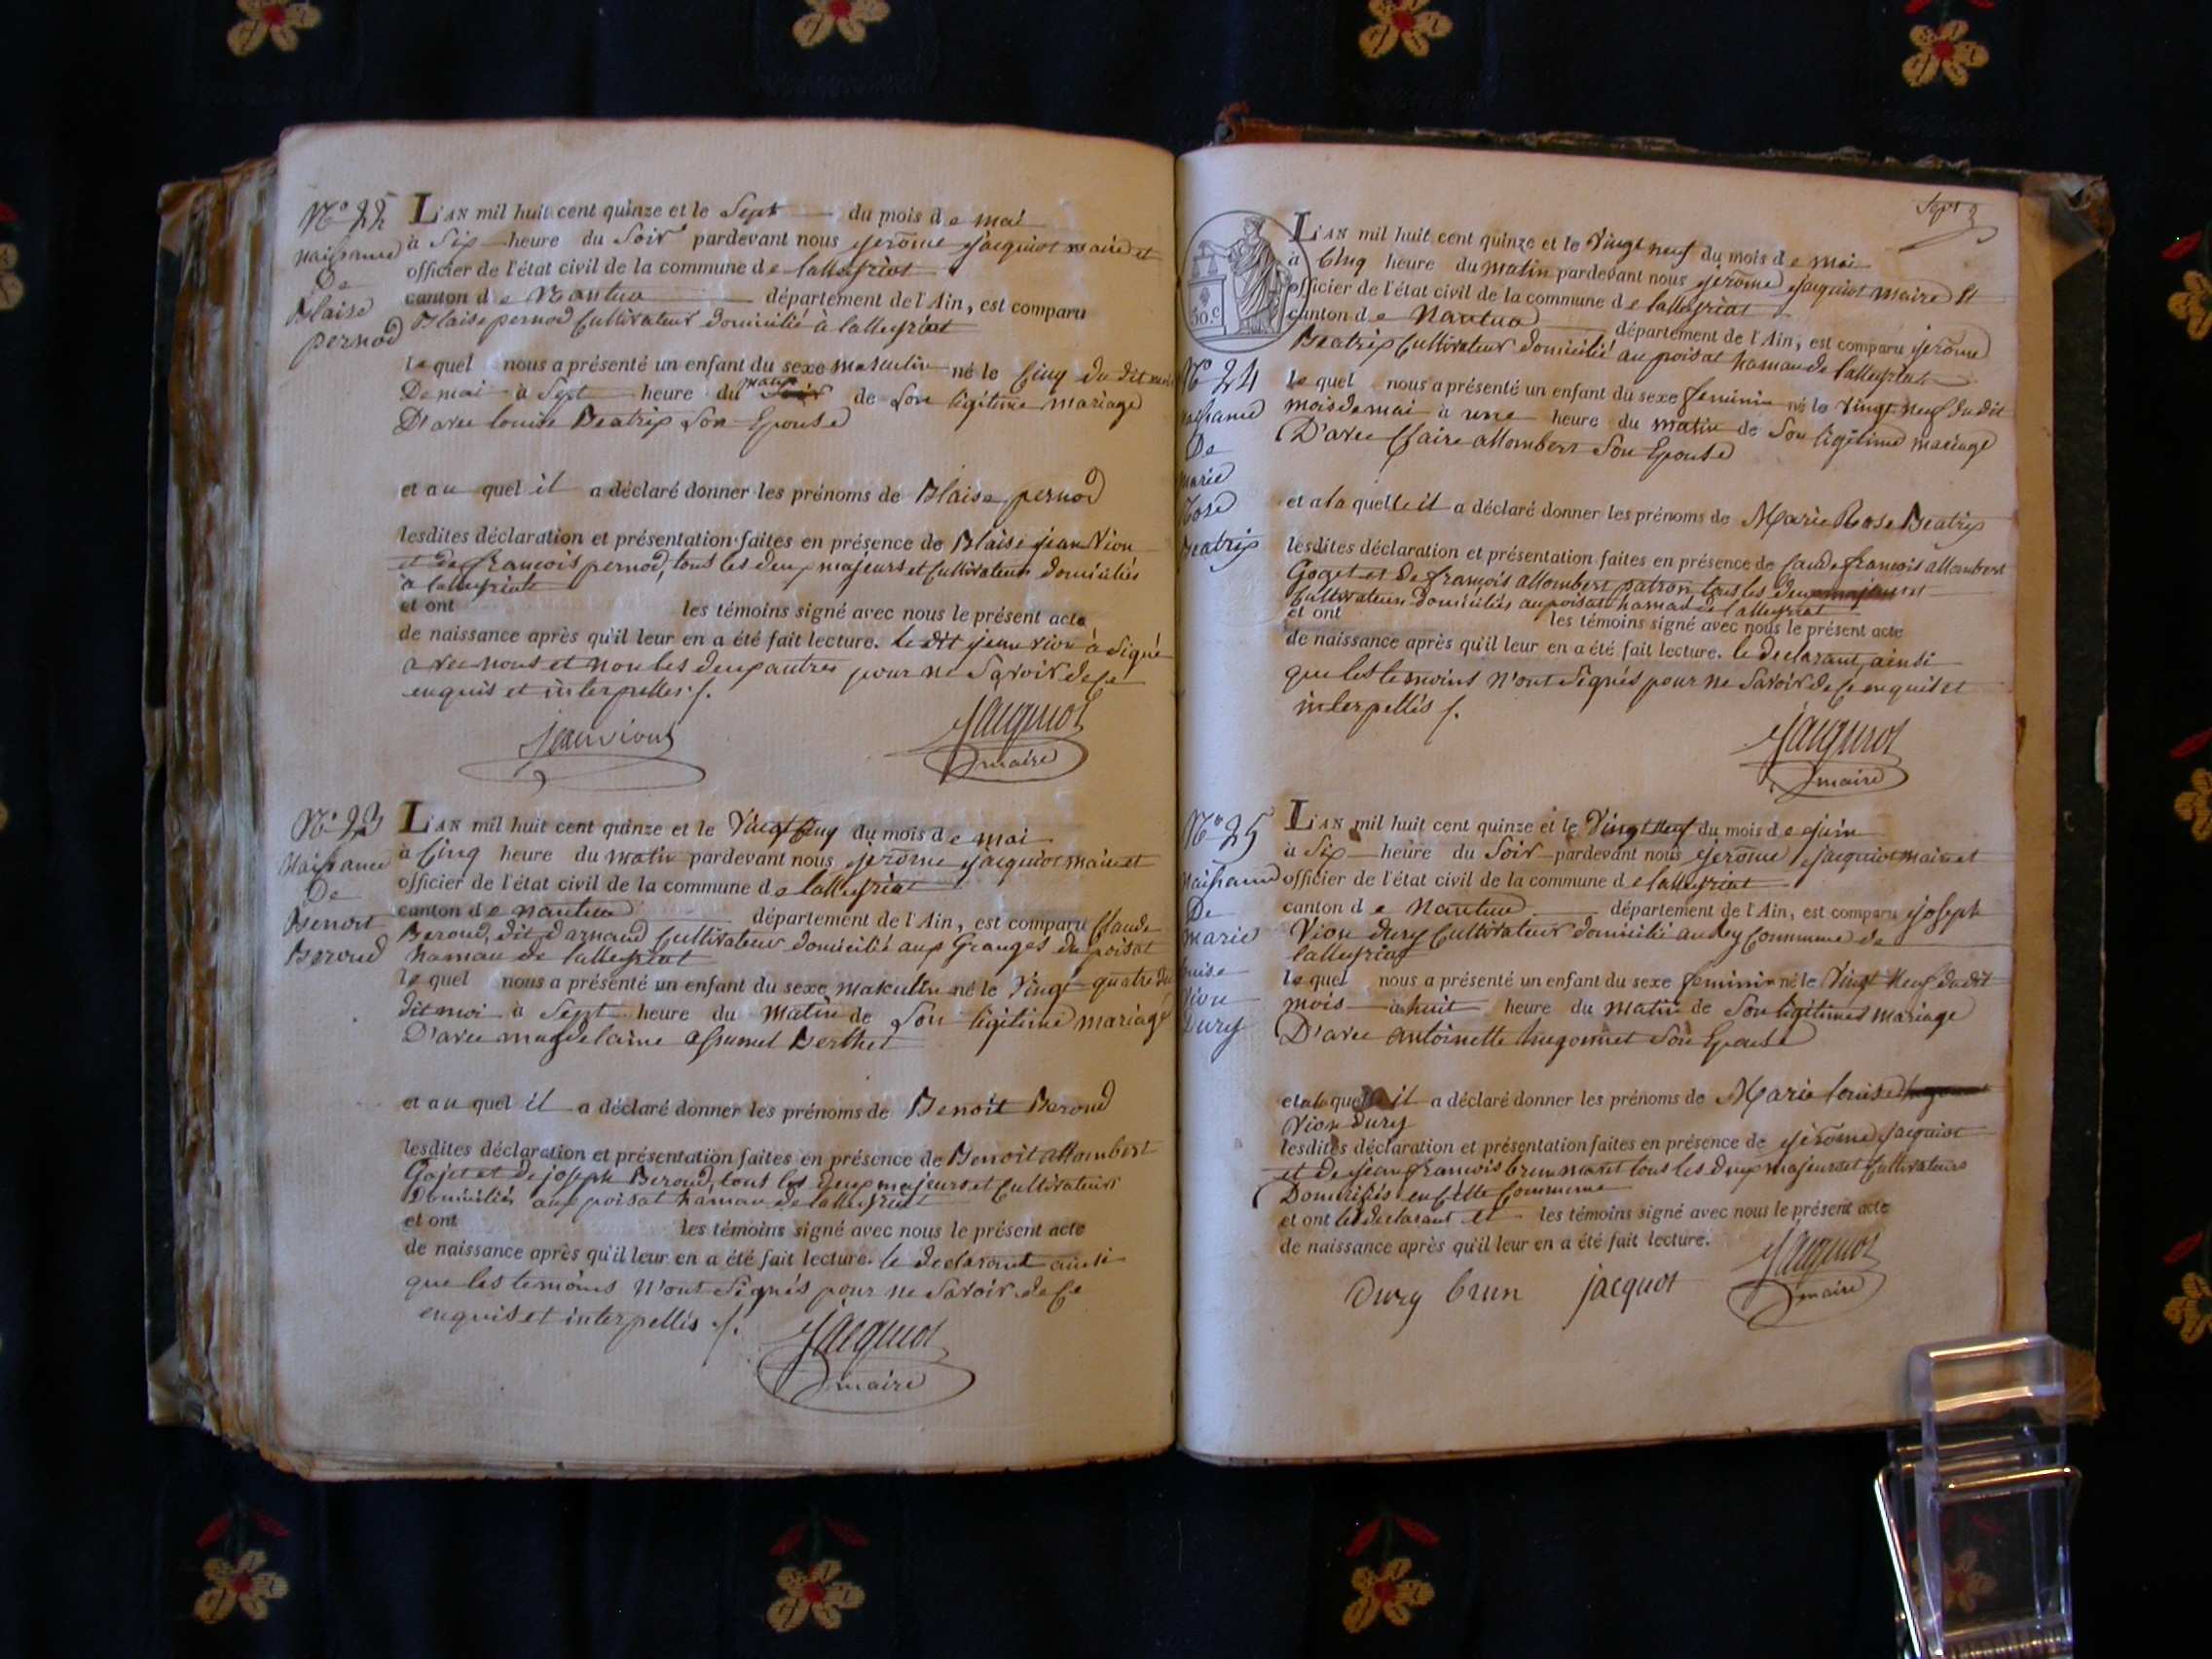 N.º 22
Naissance
De
Blaise
pernod
L'AN mil huit cent quinze et le Sept du mois de mai
à Six heure du Soir pardevant nous jerôme jacquiot maire et
officier de l'état civil de la commune de lalleyriat
canton de Nantua département de l'Ain, est comparu
Blaise pernod Cultivateur domicilié à lalleyriat
lequel nous a présenté un enfant du sexe masculin né le Cinq du dit mois
De mai à Sept heure du matin Soir de Son légitime mariage
D'avec louise Beatrix Son Epouse
et au quel il a déclaré donner les prénoms de Blaise pernod
lesdites déclaration et présentation faites en présence de Blaise jean Vion
et de françois pernod, tous les deux majeurs et Cultivateurs domiciliés
à lalleyriat
et ont les témoins signé avec nous le présent acte
de naissance après qu'il leur en a été fait lecture. le dit jean vion à Signé
avec nous et non les deux autres pour ne Savoir de Ce
enquis et interpellés /.
jean vion
Jacquiot
maire
N.º 23
Naissance
De
Benoit
Beroud
L'AN mil huit cent quinze et le Vingt Cinq du mois de mai
à Cinq heure du matin pardevant nous jerôme jacquiot maire et
officier de l'état civil de la commune de lalleyriat
canton de nantua département de l'Ain, est comparu Claude
Beroud, dit Darnaud Cultivateur domicilié aux Granges du poisat
hamau de lalleyriat
lequel nous a présenté un enfant du sexe masculin né le Vingt quatre du
dit moi à Sept heure du Matin de Son légitime mariage
D'avec magdelaine Berthet
et au quel il a déclaré donner les prénoms de Benoit Beroud
lesdites déclaration et présentation faites en présence de Benoit allombert
Gojet et de joseph Beroud, tous les deux majeurs et Cultivateurs
Domiciliés aux poisat hamau de lalleyriat
et ont les témoins signé avec nous le présent acte
de naissance après qu'il leur en a été fait lecture. le declarant ainsi
que les temoins N'ont Signés pour ne Savoir de Ce
enquis et interpellés /.
Jacquiot
maire
Sept
30.C
N.º 24
naissance
De
marie
Rose
Beatrix
L'AN mil huit cent quinze et le Vingt neuf du mois de mai
à Cinq heure du matin pardevant nous jerôme jacquiot maire Et
officier de l'état civil de la commune de lalleyriat
canton de Nantua département de l'Ain, est comparu jerôme
Beatrix Cultivateur domicilié au poisat hamau de lalleyriat
lequel nous a présenté un enfant du sexe feminin né le Vingt neuf du dit
mois de mai à une heure du matin de Son légitime mariage
D'avec Claire allombert Son Epouse
et a la quelle il a déclaré donner les prénoms de Marie Rose Beatrix
lesdites déclaration et présentation faites en présence de Caude françois allombert
Goget et De françois allombert patron tous les deux majeurs et
Cultivateurs domiciliés au poisat hamau de lalleyriat
et ont les témoins signé avec nous le présent acte
de naissance après qu'il leur en a été fait lecture. le declarant, ainsi
que les temoins N'ont Signés pour ne Savoir de Ce enquis et
interpellés /.
Jacquiot
maire
N.º 25
naissance
De
marie
louise
Vion
Dury
L'AN mil huit cent quinze et le Vingt neuf du mois de juin
à Six heure du Soir pardevant nous jerôme jacquiot maire et
officier de l'état civil de la commune de lalleyriat
canton de Nantua département de l'Ain, est comparu joseph
Vion dury Cultivateur domicilié au Ley Commune de
lalleyriat
lequel nous a présenté un enfant du sexe feminin né le Vingt Neuf du dit
mois à huit heure du matin de Son légitimes mariage
D'avec antoinette hugonnet Son Epouse
et a la quelle il a déclaré donner les prénoms de Marie louise
Vion Dury
lesdites déclaration et présentation faites en présence de jérôme jacquiot
et de jean françois brun maret tous les deux majeurs et Cultivateurs
Domiciliés en Cette Commune
et ont le declarant et les témoins signé avec nous le présent acte
de naissance après qu'il leur en a été fait lecture.
Dury brun jacquot
Jacquiot
maire